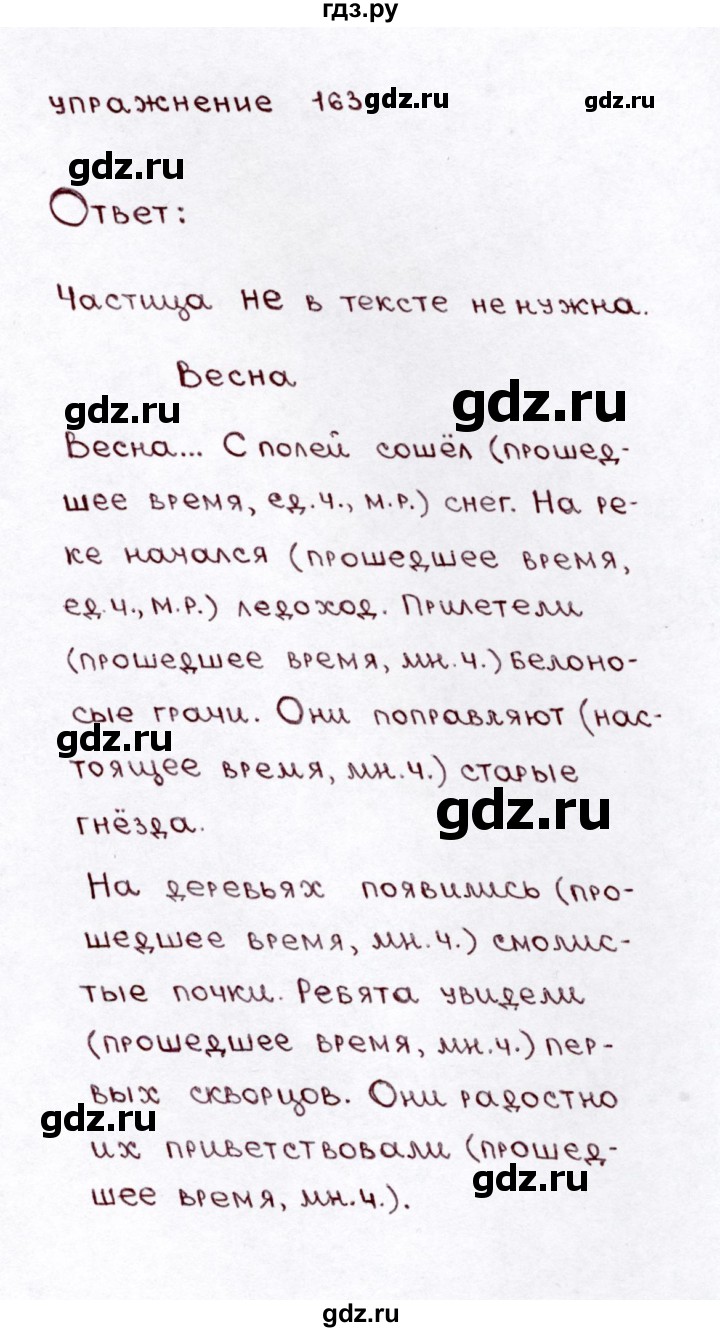 гдз.ру
упражнение 163 gdz.ru gdz.ru
gdz.ru
Ответ:
Частица не в тексте не нужна.
Весна
gdz.ru gdz.ru
Весна... С полей сошёл (прошед-
шее время, ед.ч., м.р.) снег. На ре-
ке начался (прошедшее время,
ед.ч., м.р.) ледоход. Прилетели
(прошедшее время, мн.ч.) белоно-
сые грачи. Они поправляют (нас-
gdz.ru
тоящее время, мн.ч.) старые
gdz.ru
гнёзда.
На деревьях появились (про-
шедшее время, мн.ч.) смолис-
тые почки. Ребята увидели
(прошедшее время, мн.ч.) пер-
вых скворцов. Они радостно
gdz.ru
их приветствовали (прошед-
gdz.ru
шее время, мн.ч.).
gdz.ru